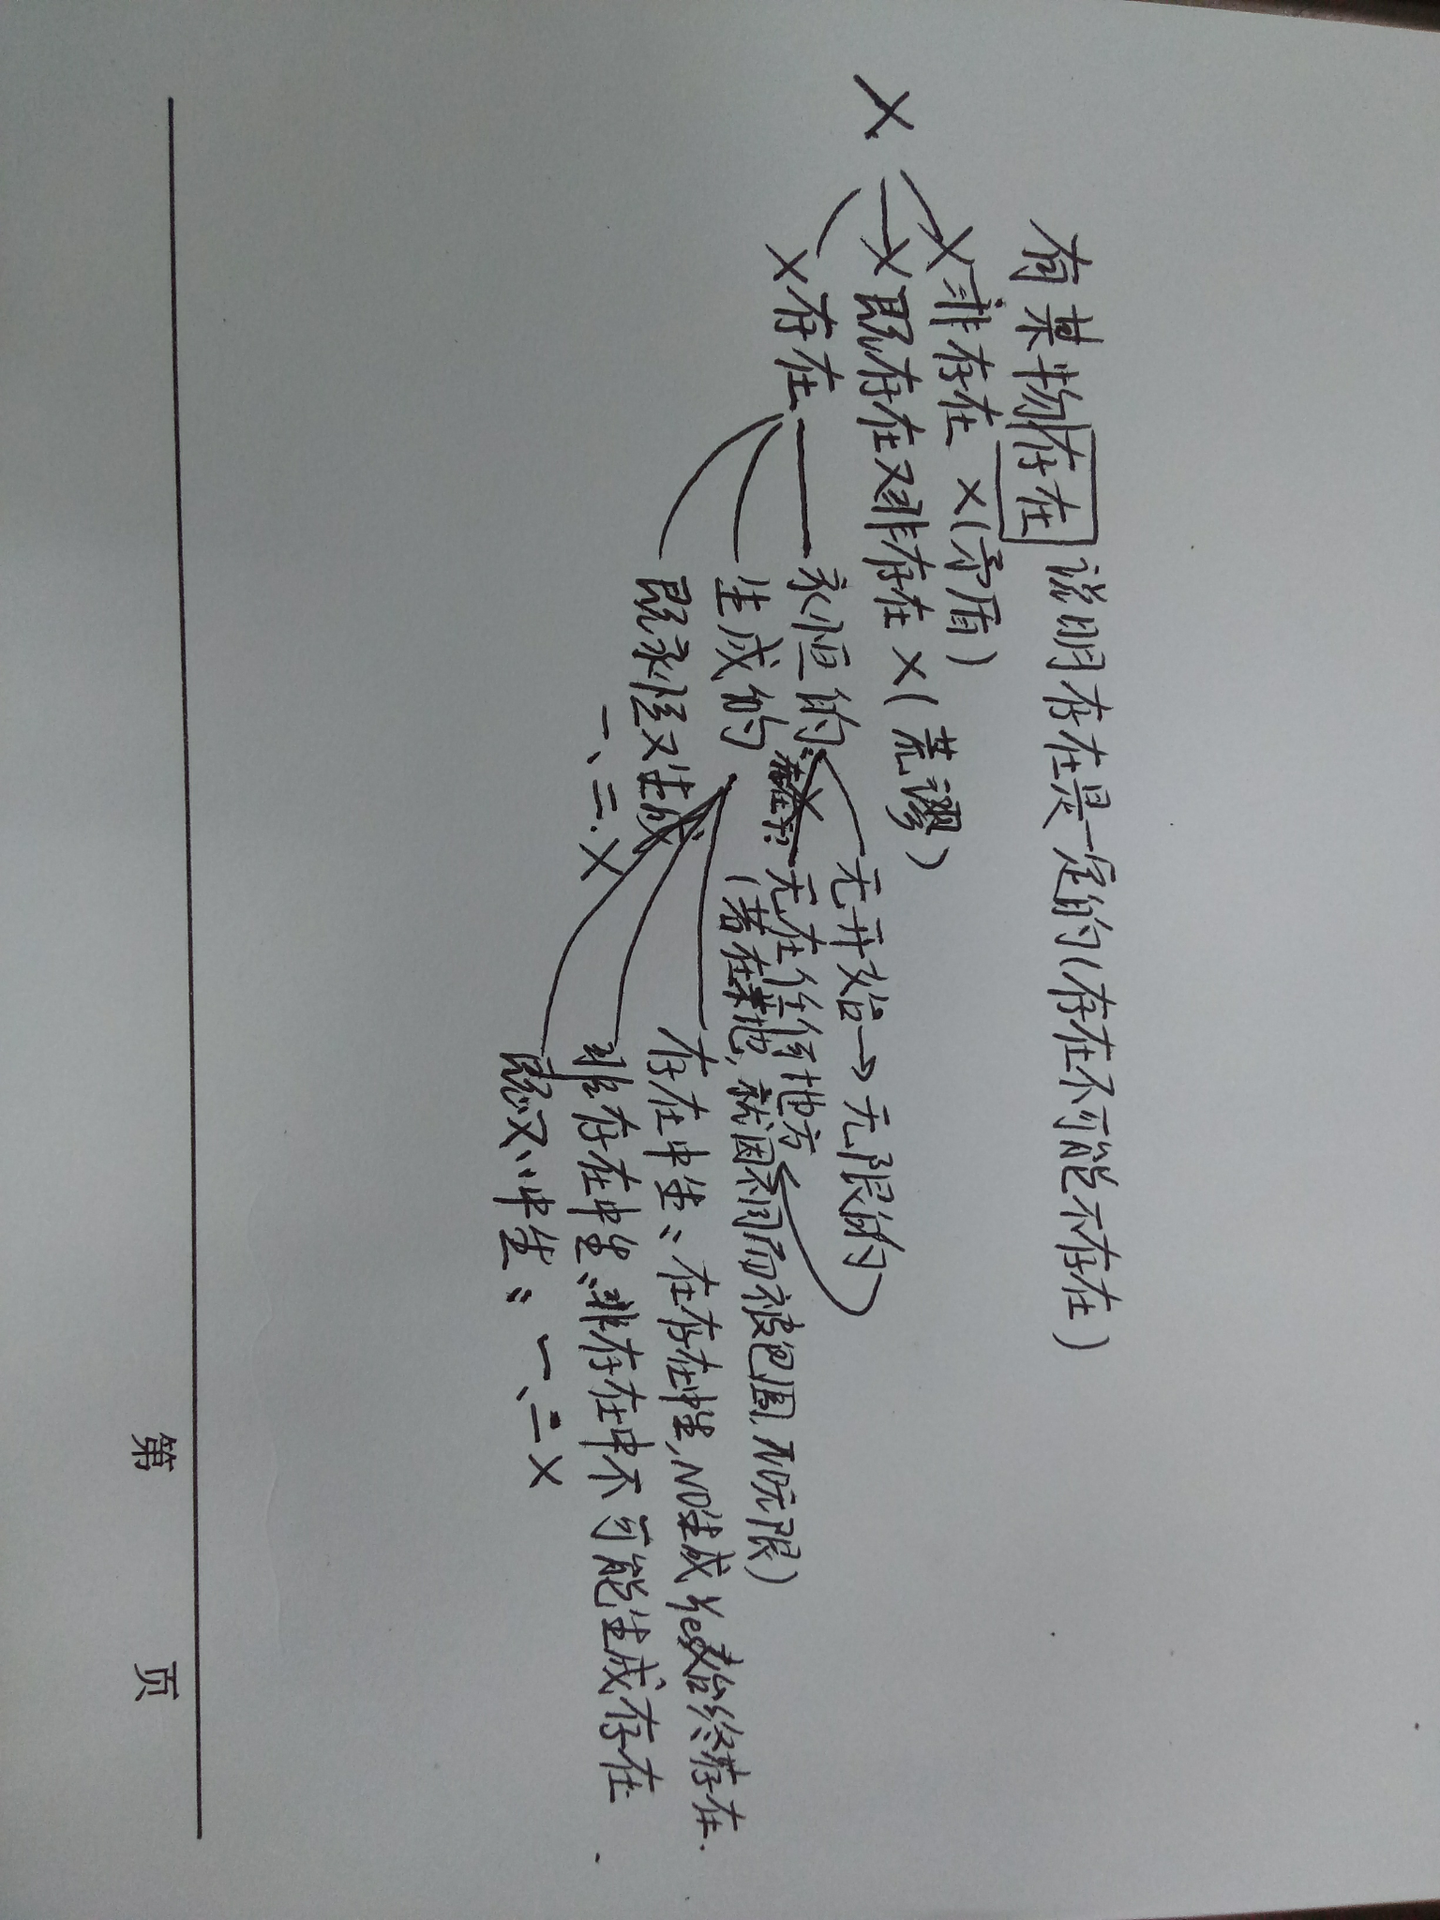 有某物存在说明存在是一定的(存在不可能不存在)
X
X非存在 X(矛盾)
X既存在又非存在 X(荒谬)
X存在
永恒的
无开始→无限的
无在任何地方
(若在某地,就因不同而被包围,NO无限)
生成的
存在中生:在存在中生,NO生成 Yes始终存在.
非存在中生:非存在中不可能生成存在
既又..中生: 一、二X
既永恒又生成
一、二.X
第 页